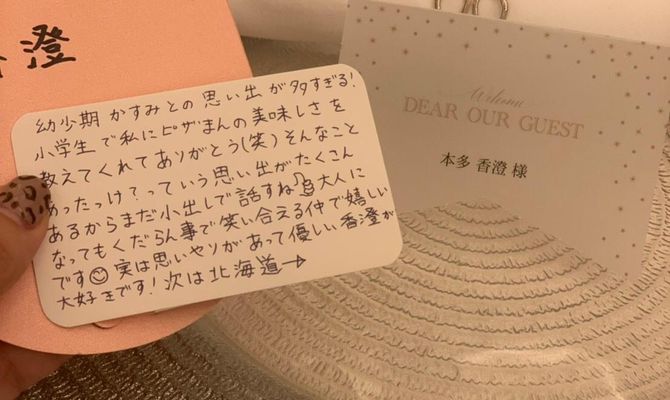 澄
幼少期かすみとの思い出が多すぎる!
小学生で私にピザまんの美味しさを
教えてくれてありがとう(笑)そんなこと
あったっけ?っていう思い出がたくさん
あるからまだ小出しで話すね
大人に
なってもくだらん事で笑い合える仲で嬉しい
です 実は思いやりがあって優しい香澄が
大好きです!次は北海道→
Welcome
DEAR OUR GUEST
本多 香澄 様